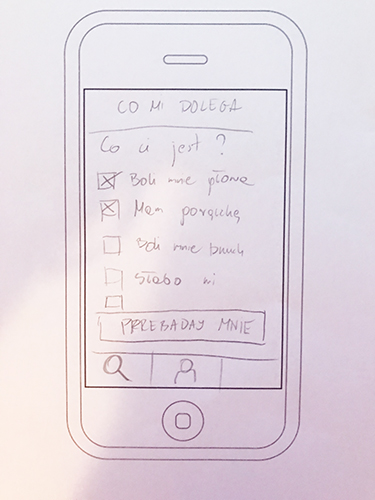 CO MI DOLEGA
Co ci jest?
Boli mnie głowa
Mam gorączkę
Boli mnie brzuch
Słabo mi
PRZEBADAJ MNIE